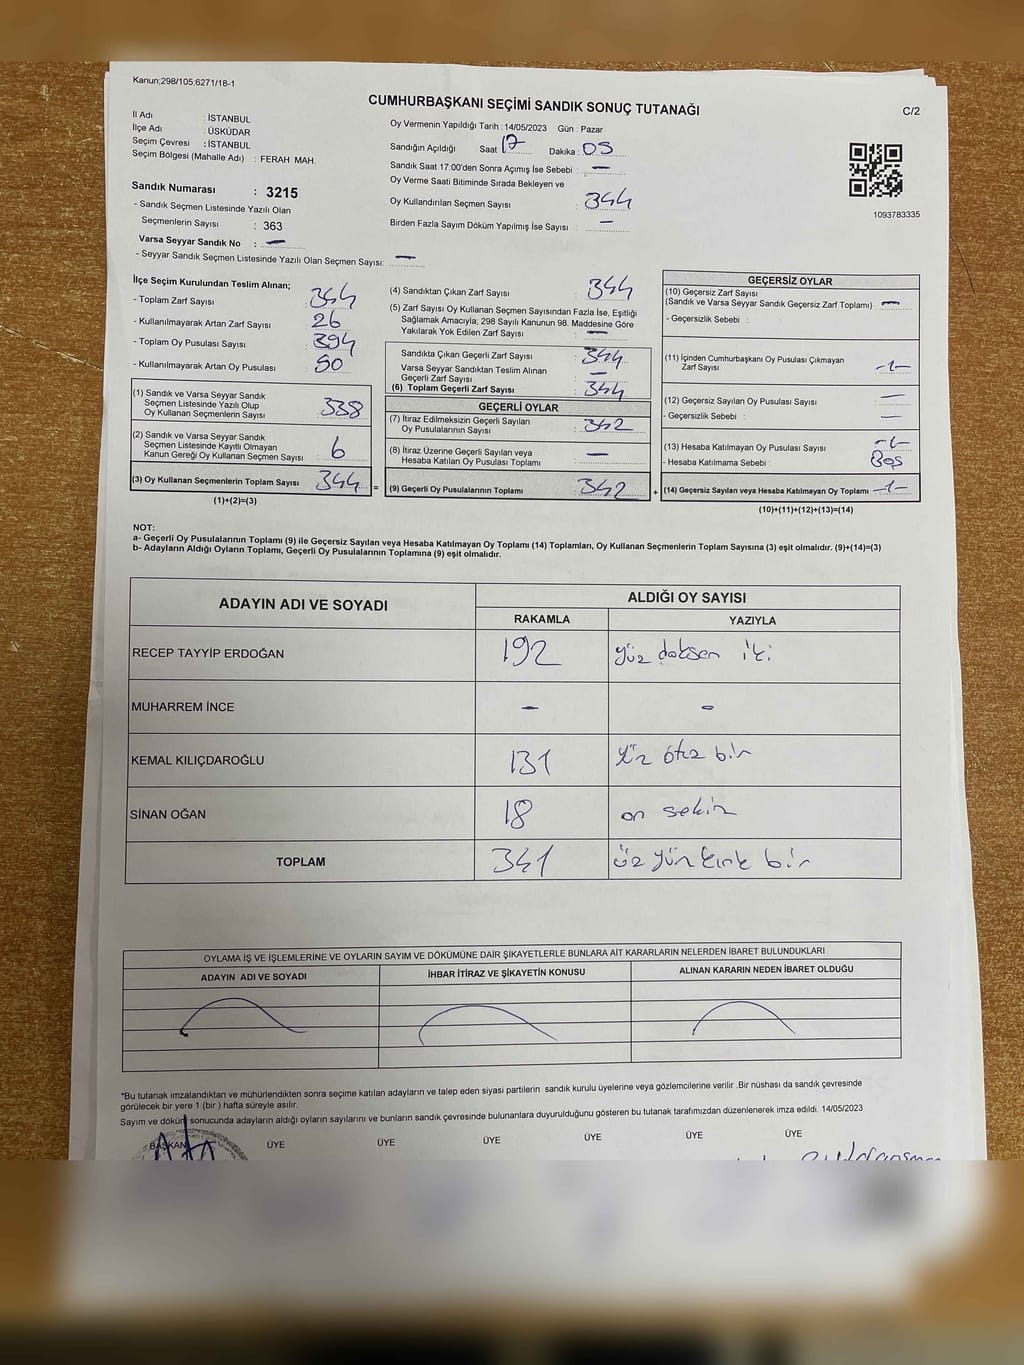 Kanun;298/105;6271/18-1
CUMHURBAŞKANI SEÇİMİ SANDIK SONUÇ TUTANAĞI
C/2
İl Adı : İSTANBUL
İlçe Adı : ÜSKÜDAR
Seçim Çevresi : İSTANBUL
Seçim Bölgesi (Mahalle Adı) : FERAH MAH.
Oy Vermenin Yapıldığı Tarih : 14/05/2023 Gün : Pazar
Sandığın Açıldığı Saat 17 Dakika : 05
Sandık Saat 17:00'den Sonra Açımış İse Sebebi : —
Oy Verme Saati Bitiminde Sırada Bekleyen ve
Oy Kullandırılan Seçmen Sayısı : 344
Birden Fazla Sayım Döküm Yapılmış İse Sayısı : —
1093783335
Sandık Numarası : 3215
- Sandık Seçmen Listesinde Yazılı Olan
Seçmenlerin Sayısı : 363
Varsa Seyyar Sandık No : —
- Seyyar Sandık Seçmen Listesinde Yazılı Olan Seçmen Sayısı: —
İlçe Seçim Kurulundan Teslim Alınan;
- Toplam Zarf Sayısı
- Kullanılmayarak Artan Zarf Sayısı : 26
- Toplam Oy Pusulası Sayısı : 394
- Kullanılmayarak Artan Oy Pusulası : 50
(1) Sandık ve Varsa Seyyar Sandık
Seçmen Listesinde Yazılı Olup
Oy Kullanan Seçmenlerin Sayısı : 338
(2) Sandık ve Varsa Seyyar Sandık
Seçmen Listesinde Kayıtlı Olmayan
Kanun Gereği Oy Kullanan Seçmen Sayısı : 6
(3) Oy Kullanan Seçmenlerin Toplam Sayısı : 344 =
(1)+(2)=(3)
(4) Sandıktan Çıkan Zarf Sayısı : 344
(5) Zarf Sayısı Oy Kullanan Seçmen Sayısından Fazla İse, Eşitliği
Sağlamak Amacıyla; 298 Sayılı Kanunun 98. Maddesine Göre
Yakılarak Yok Edilen Zarf Sayısı : —
Sandıkta Çıkan Geçerli Zarf Sayısı : 344
Varsa Seyyar Sandıktan Teslim Alınan
Geçerli Zarf Sayısı : —
(6) Toplam Geçerli Zarf Sayısı : 344
GEÇERLİ OYLAR
(7) İtiraz Edilmeksizin Geçerli Sayılan
Oy Pusulalarının Sayısı : 342
(8) İtiraz Üzerine Geçerli Sayılan veya
Hesaba Katılan Oy Pusulası Toplamı : —
(9) Geçerli Oy Pusulalarının Toplamı : 342 +
GEÇERSİZ OYLAR
(10) Geçersiz Zarf Sayısı
(Sandık ve Varsa Seyyar Sandık Geçersiz Zarf Toplamı) : —
- Geçersizlik Sebebi :
(11) İçinden Cumhurbaşkanı Oy Pusulası Çıkmayan
Zarf Sayısı : -1-
(12) Geçersiz Sayılan Oy Pusulası Sayısı : —
- Geçersizlik Sebebi : —
(13) Hesaba Katılmayan Oy Pusulası Sayısı : -1-
- Hesaba Katılmama Sebebi : Boş
(14) Geçersiz Sayılan veya Hesaba Katılmayan Oy Toplamı : -1-
(10)+(11)+(12)+(13)=(14)
NOT:
a- Geçerli Oy Pusulalarının Toplamı (9) ile Geçersiz Sayılan veya Hesaba Katılmayan Oy Toplamı (14) Toplamları, Oy Kullanan Seçmenlerin Toplam Sayısına (3) eşit olmalıdır. (9)+(14)=(3)
b- Adayların Aldığı Oyların Toplamı, Geçerli Oy Pusulalarının Toplamına (9) eşit olmalıdır.
ADAYIN ADI VE SOYADI
ALDIĞI OY SAYISI
RAKAMLA YAZIYLA
RECEP TAYYİP ERDOĞAN 192 yüz doksan iki
MUHARREM İNCE - -
KEMAL KILIÇDAROĞLU 131 yüz otuz bir
SİNAN OĞAN 18 on sekiz
TOPLAM 341 üç yüz kırk bir
OYLAMA İŞ VE İŞLEMLERİNE VE OYLARIN SAYIM VE DÖKÜMÜNE DAİR ŞİKAYETLERLE BUNLARA AİT KARARLARIN NELERDEN İBARET BULUNDUKLARI
ADAYIN ADI VE SOYADI İHBAR İTİRAZ VE ŞİKAYETİN KONUSU ALINAN KARARIN NEDEN İBARET OLDUĞU
*Bu tutanak imzalandıktan ve mühürlendikten sonra seçime katılan adayların ve talep eden siyasi partilerin sandık kurulu üyelerine veya gözlemcilerine verilir .Bir nüshası da sandık çevresinde
görülecek bir yere 1 (bir ) hafta süreyle asılır.
Sayım ve döküm sonucunda adayların aldığı oyların sayılarını ve bunların sandık çevresinde bulunanlara duyurulduğunu gösteren bu tutanak tarafımızdan düzenlenerek imza edildi. 14/05/2023
BAŞKAN ÜYE ÜYE ÜYE ÜYE ÜYE ÜYE